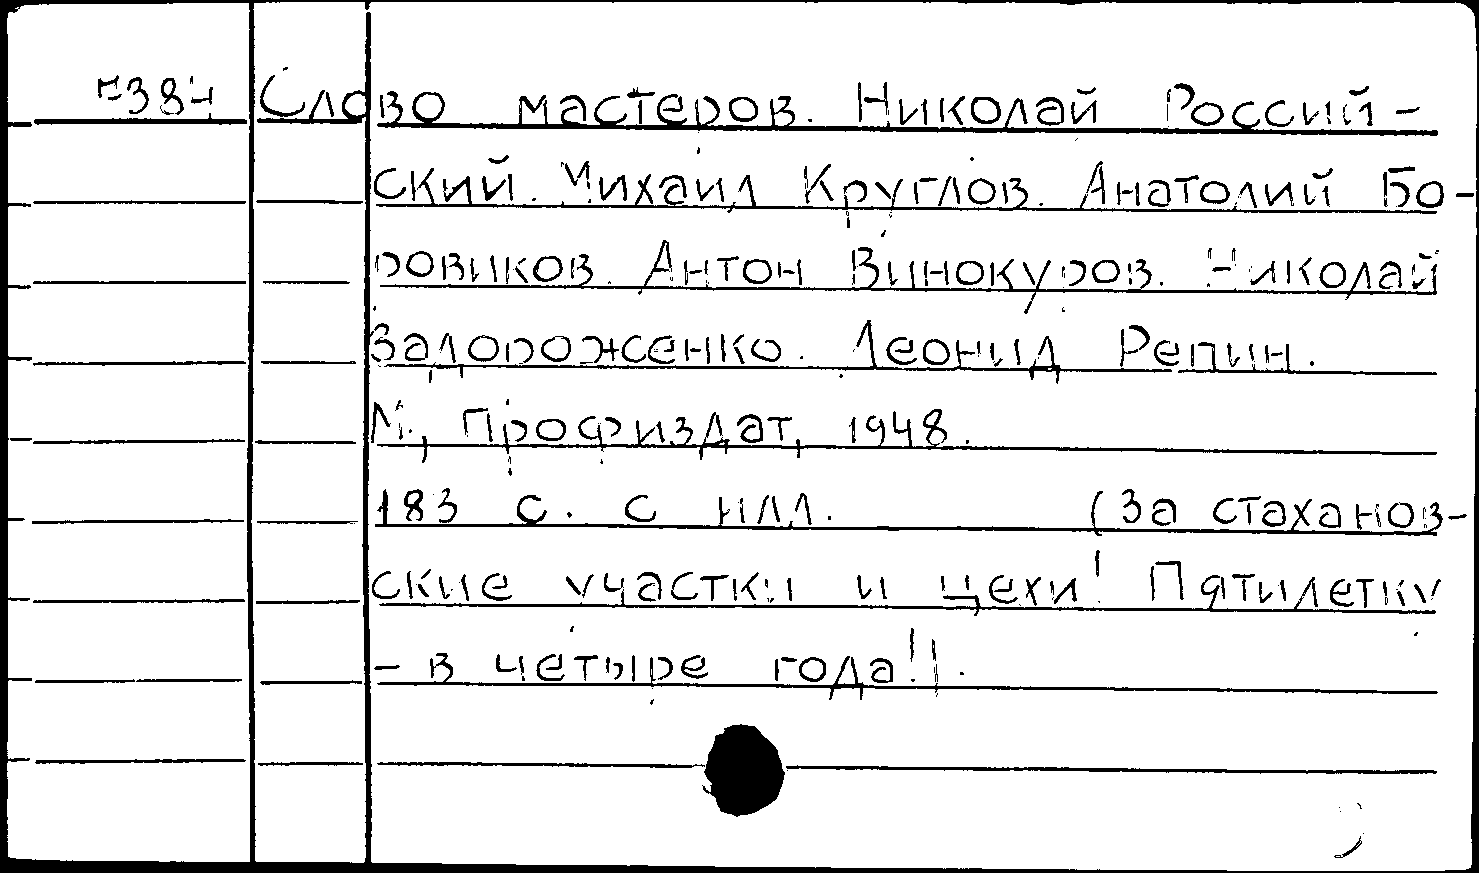 7384 Слово мастеров. Николай Россий-
ский. Михаил Круглов. Анатолий Бо-
ровиков. Антон Винокуров. Николай
Задороженко. Леонид Репин.
М., Профиздат, 1948.
183 с. с илл. (За стаханов-
ские участки и цехи! Пятилетку
- в четыре года!).